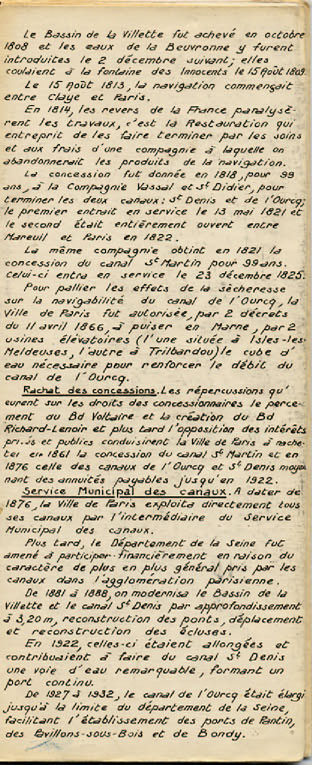 Le Bassin de la Villette fut achevé en octobre
1808 et les eaux de la Beuvronne y furent
introduites le 2 décembre suivant; elles
coulaient à la fontaine des Innocents le 15 Août 1809.
Le 15 Août 1813, la navigation commençait
entre Claye et Paris.
En 1814, les revers de la France paralysè-
rent les travaux, c'est la Restauration qui
entreprit de les faire terminer par les soins
et aux frais d'une compagnie à laquelle on
abandonnerait les produits de la navigation.
La concession fut donnée en 1818, pour 99
ans, à la Compagnie Vassal et St Didier, pour
terminer les deux canaux: St Denis et de l'Ourcq;
le premier entrait en service le 13 mai 1821 et
le second était entièrement ouvert entre
Mareuil et Paris en 1822.
La même compagnie obtint en 1821 la
concession du canal St Martin pour 99 ans.
Celui-ci entra en service le 23 décembre 1825.
Pour pallier les effets de la sècheresse
sur la navigabilité du canal de l'Ourcq, la
Ville de Paris fut autorisée, par 2 décrets
du 11 avril 1866, à puiser en Marne, par 2
usines élévatoires (l'une située à Isles-les-
Meldeuses, l'autre à Trilbardou) le cube d'
eau nécessaire pour renforcer le débit du
canal de l'Ourcq.
Rachat des concessions. Les répercussions qu'
eurent sur les droits des concessionnaires le perce-
ment du Bd Voltaire et la création du Bd
Richard-Lenoir et plus tard l'opposition des intérêts
privés et publics conduisirent la Ville de Paris à rache-
ter en 1861 la concession du canal St Martin et en
1876 celle des canaux de l'Ourcq et St Denis moyen
nant des annuités payables jusqu'en 1922.
Service Municipal des canaux. A dater de
1876, la Ville de Paris exploita directement tous
ses canaux par l'intermédiaire du Service
Municipal des canaux.
Plus tard, le Département de la Seine fut
amené à participer financièrement en raison du
caractère de plus en plus général pris par les
canaux dans l'agglomération parisienne.
De 1881 à 1888, on modernisa le Bassin de la
Villette et le canal St Denis par approfondissement
à 3,20 m, reconstruction des ponts, déplacement
et reconstruction des écluses.
En 1922, celles-ci étaient allongées et
contribuaient à faire du canal St Denis
une voie d'eau remarquable, formant un
port continu.
De 1927 à 1932, le canal de l'Ourcq était élargi
jusqu'à la limite du département de la Seine,
facilitant l'établissement des ports de Pantin,
des Pavillons-sous-Bois et de Bondy.